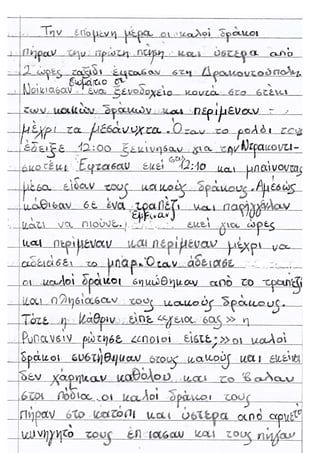 Την επόμενη μέρα οι καλοί δράκοι
πήραν την πρώτη πτήση και ύστερα από
2 ώρες ταξίδι έφτασαν στη Δρακοντούπολη.
Νοίκιασαν δωμάτιο σε ένα ξενοδοχείο κοντά στο στέκι
των κακών δράκων και περίμεναν
μέχρι τα μεσάνυχτα. Όταν το ρολόι τους
έδειξε 12:00 ξεκίνησαν για την
σκοτέκ. Έφτασαν εκεί στις 12:10 και μπαίνοντας
μέσα είδαν τους κακούς δράκους. Αμέσως
κάθισαν σε ένα τραπέζι και παρήγγειλαν
κάτι να πιούνε. έμειναν εκεί για ώρες
και περίμεναν και περίμεναν μέχρι να
αδειάσει το μπαρ. Όταν άδειασε
οι καλοί δράκοι σηκώθηκαν από το τραπέζι
και πλησίασαν τους κακούς δράκους.
Τότε η Κάθριν είπε «γεια σας» η
Ρυπανσιν ρώτησε «ποιοί είστε;» οι καλοί
δράκοι συστήθηκαν στους κακούς και εκείνοι
δεν χάρηκαν καθόλου και το 'βαλαν
στα πόδια. οι καλοί δράκοι τους
πήραν στο κατόπι και ύστερα από αρκετό
κυνηγητό τους έπιασαν και τους πήγαν